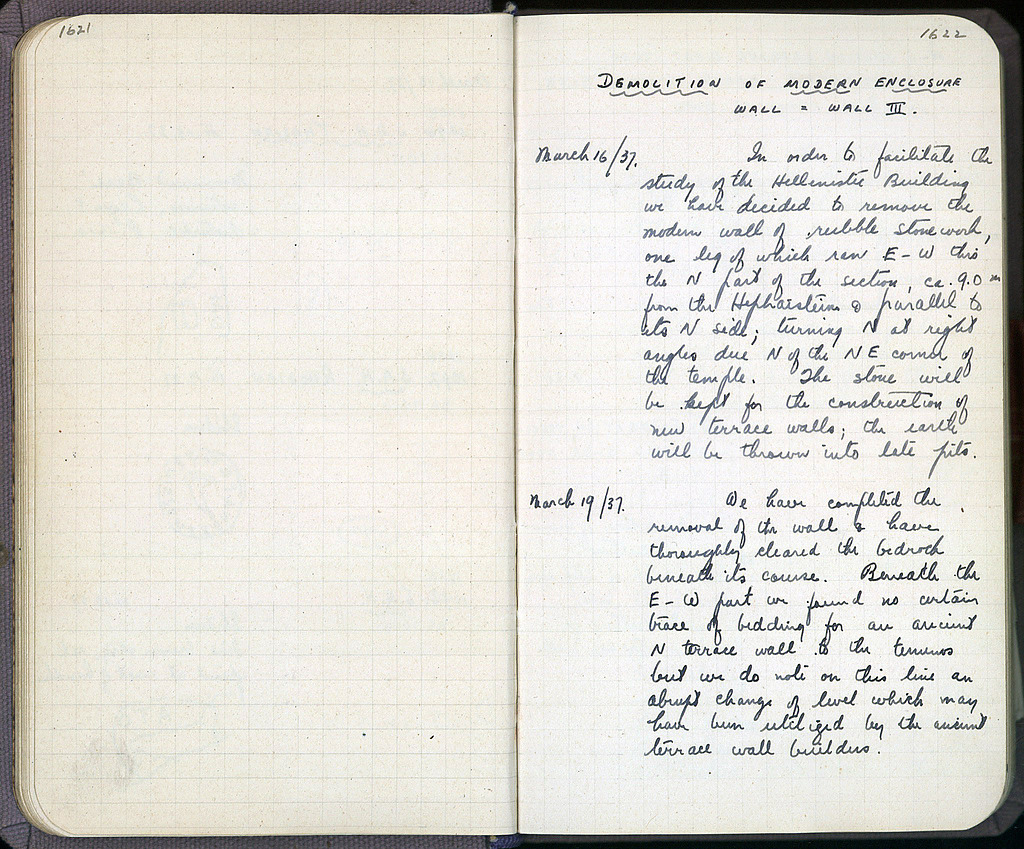 1621
1622
DEMOLITION OF MODERN ENCLOSURE
WALL = WALL III.
March 16/37. In order to facilitate the
study of the Hellenistic Building
we have decided to remove the
modern wall of rubble stonework,
one leg of which ran E-W thro
the N part of the section, ca. 9.0 m
from the Hephaisteion & parallel to
its N side; turning N at right
angles due N of the NE corner of
the temple. The stone will
be kept for the construction of
new terrace walls; the earth
will be thrown into late pits.
March 19/37. We have completed the
removal of the wall & have
thoroughly cleared the bedrock
beneath its course. Beneath the
E-W part we found no certain
trace of bedding for an ancient
N terrace wall to the temenos
but we do note on this line an
abrupt change of level which may
have been utilized by the ancient
terrace wall builders.